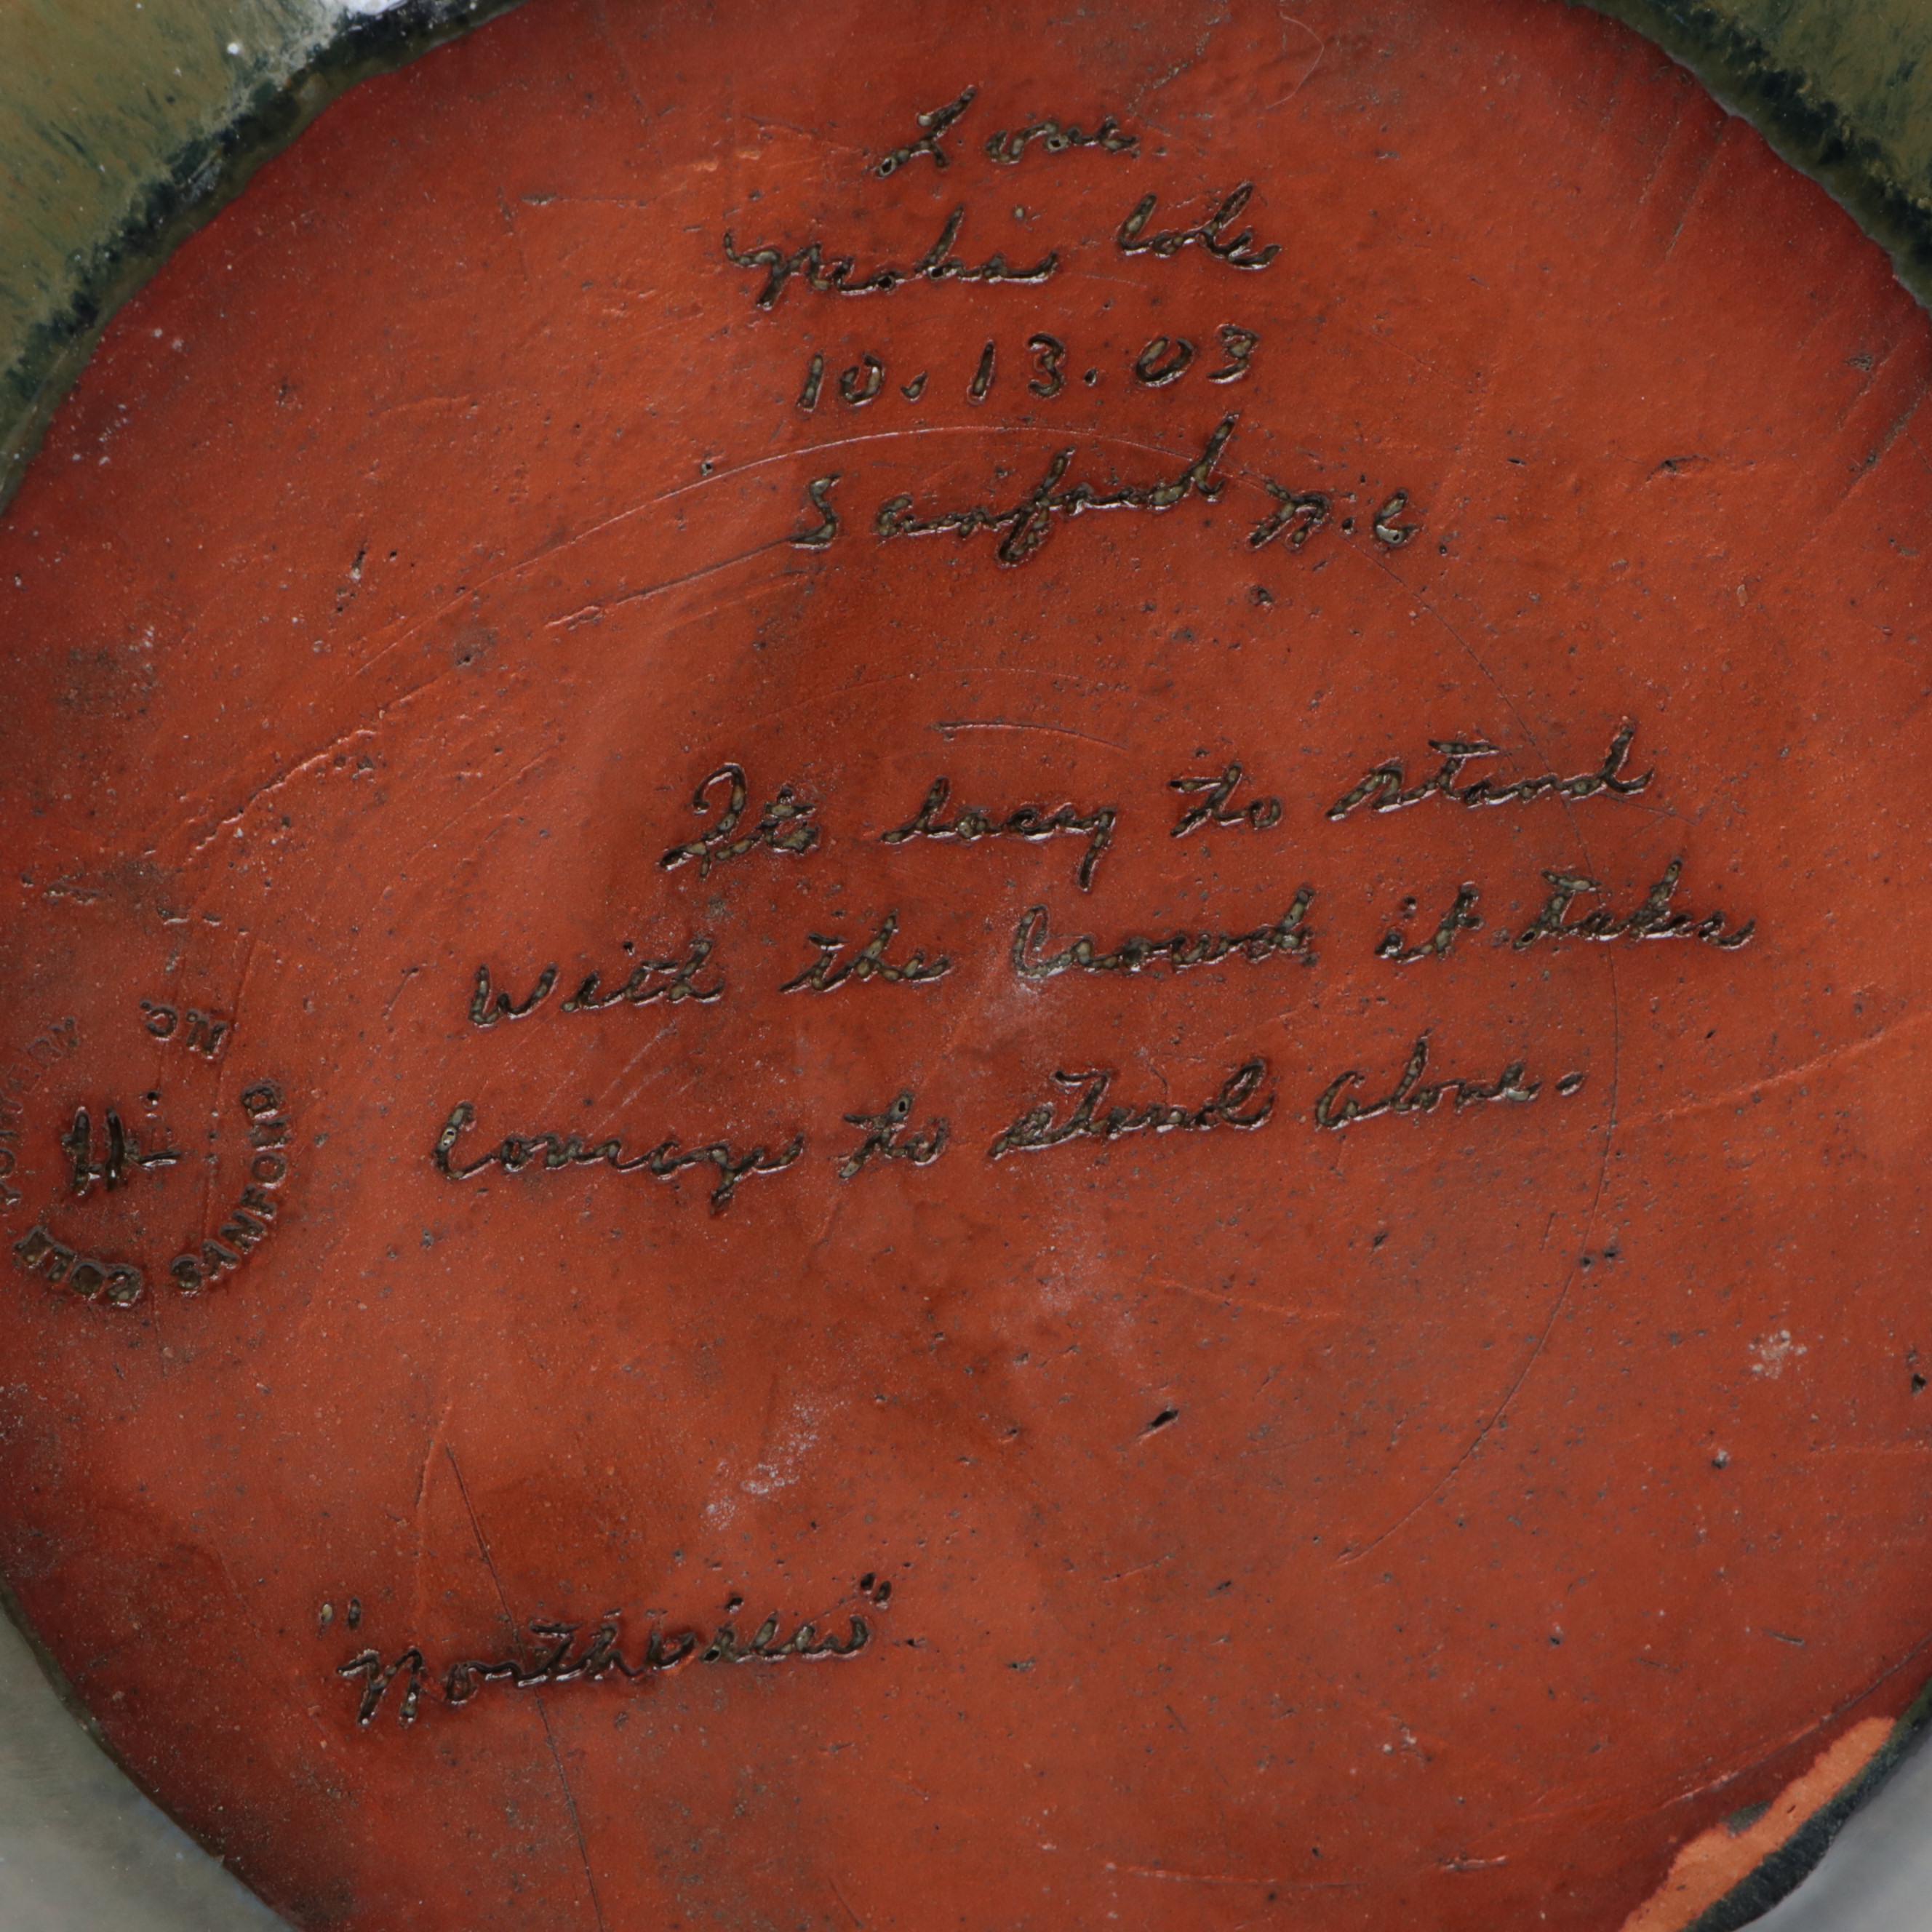 Love
Neolia Cole
10.13.03
Sanford N.C.
Its easy to stand
With the Crowd it takes
Courage to stand Alone.
COLE POTTERY
SANFORD N.C.
"Northview"